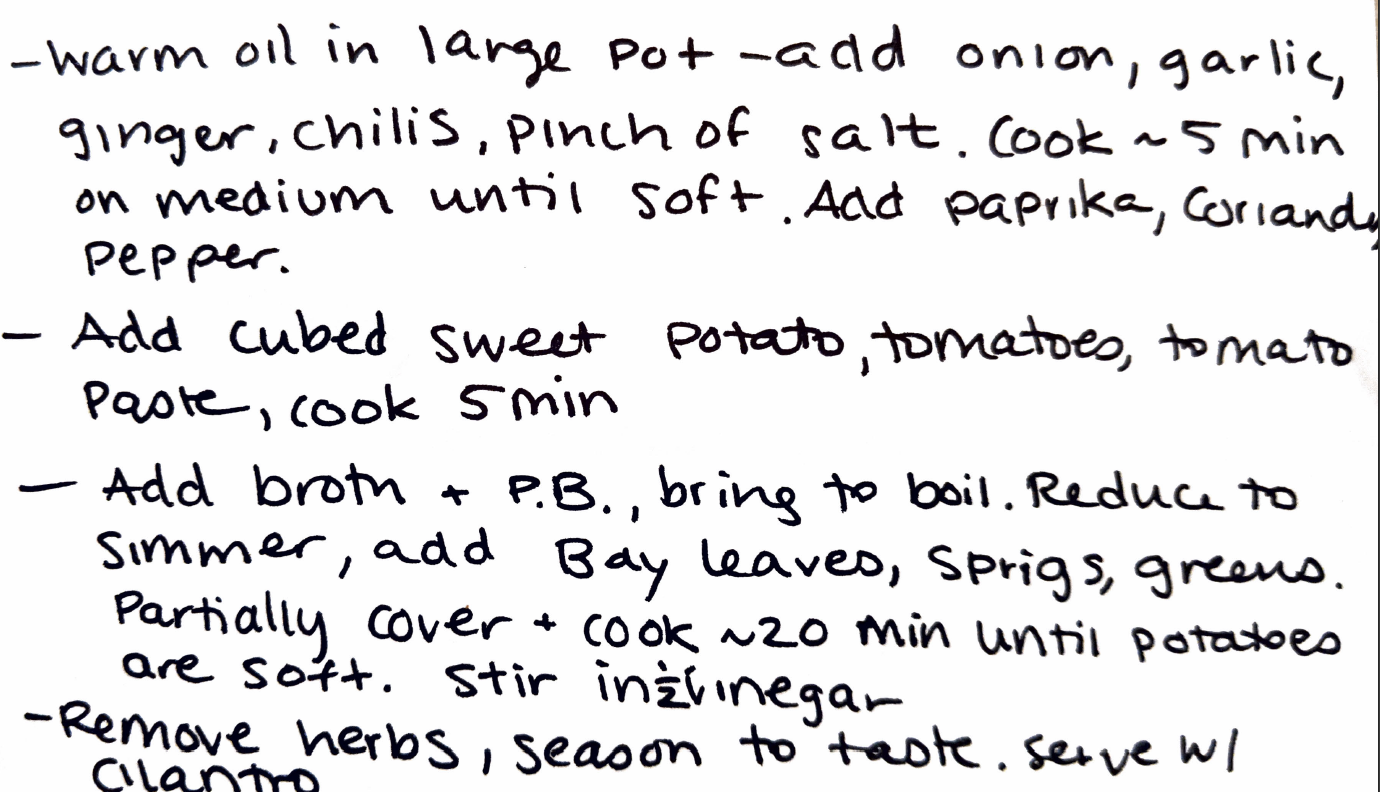 -Warm oil in large pot -add onion, garlic,
ginger, chilis, pinch of salt. Cook ~5 min
on medium until soft. Add paprika, Coriand
pepper.
- Add cubed sweet potato, tomatoes, tomato
Paste, cook 5 min
- Add broth + P.B., bring to boil. Reduce to
Simmer, add Bay leaves, sprigs, greens.
Partially cover + cook ~20 min until potatoes
are soft. Stir in ½ vinegar
-Remove herbs, season to taste. serve w/
Cilantro